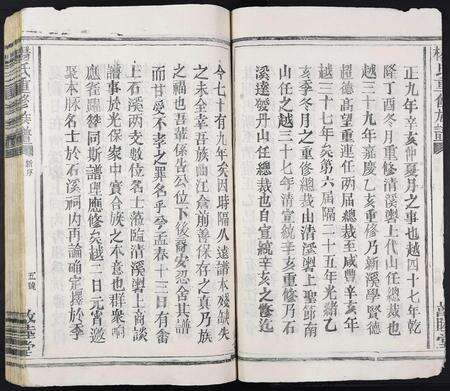 正九年辛亥仲夏月之事也越四十七年乾
隆丁酉冬月重修清溪輿上代山任總裁也
越三十九年嘉慶乙亥重修乃新溪學賢德
超德高望重連任兩届總裁至咸豐辛亥年
越三十七年矣第六届隔二十五年光緒乙
亥季冬月之重修總裁由清溪輿上聖師南
山任之越三十七年清宣統辛亥重修乃石
溪達發丹山任總裁也自宣統辛亥之修迄
楊氏重修族譜
新序
五號
敦睦堂
今七十有九年矣因時隔久遠譜本殘缺失
之未全幸吾族由江俞崩善保存之真乃族
之福也吾輩係皆公位下後裔安忍舍其譜
而甘受不孝之罪名乎兮孟春十三日有畲
上石溪兩支數位名士蒞臨清溪輿上商談
譜事於光保家中實合族之本意也群衆响
應雀躍桀同斯譜理應修矣越二日元宵邀
聚本脉名士於石溪祠內再論確定擇於季